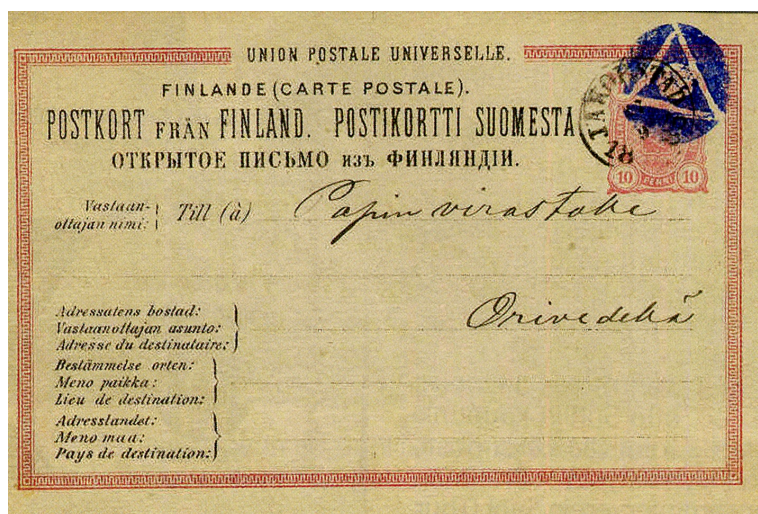 UNION POSTALE UNIVERSELLE.
FINLANDE (CARTE POSTALE).
POSTKORT FRÅN FINLAND. POSTIKORTTI SUOMESTA
ОТКРЫТОЕ ПИСЬМО изъ ФИНЛЯНДІИ.
JAKOBSTAD
18
10 PENNI 10
Vastaan-
ottajan nimi:
Till (à)
Papin virastolle
Orivedellä
Adressatens bostad:
Vastaanottajan asunto:
Adresse du destinataire:
Bestämmelse orten:
Meno paikka:
Lieu de destination:
Adresslandet:
Meno maa:
Pays de destination: